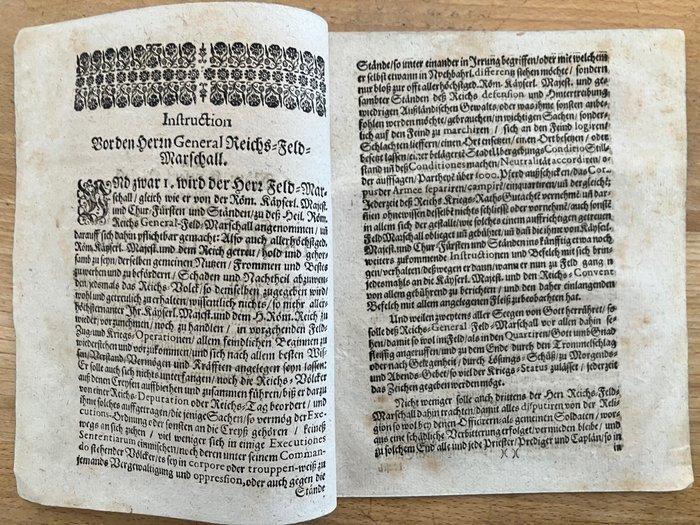 Instruction
Vor den Herrn General Reichs-Feld-
Marschall.
UNd zwar 1. wird der Herr Feld-Mar-
schall / gleich wie er von der Röm. Käyserl. Majest.
und Chur-Fürsten und Ständen / zu deß Heil. Röm.
Reichs General-Feld-Marschall angenommen / uñ
darauff sich dahin pflichtbar gemacht: Also auch allerhöchstged.
Röm. Käyserl. Majest. und dem Reich getreu / hold und gehor-
sam zu seyn / derselben gemeinen Nutzen / Frommen und Bestes
zuwerben und zu befördern / Schaden und Nachtheil abzuwen-
den / jedesmals das Reichs-Volck / so demselben zugegeben wird /
wohl und getreulich zu erhalten / wissentlich nichts / so mehr aller-
höchsternanter Ihr. Käyserl. Majest. und dem H. Röm. Reich zu
wieder / vorzunehmen / noch zu handlen / in vorgehenden Feld-
Zug und Kriegs-Operationen / allem feindlichen Beginnen zu
wiederstehen und vorzukommen / und sich nach allem besten Wis-
sen / Verstand / Vermögen und Kräfften angelegen seyn lassen:
Er solle auch sich nichts unterfangen / noch die Reichs-Völcker
auß denen Creysen auffbiethen und zusammen führen / biß er darzu
von einer Reichs-Deputation oder Reichs-Tag beordert / und
ihme solches auffgetragen / die jenige Sachen / so vermög der Exe-
cutions-Ordnung oder sonsten an die Creyß gehören / keines
wegs an sich ziehen / viel weniger sich in einige Executiones
Sententiarum einmischen / noch deren unter seinem Comman-
do stehender Völcker / es sey in corpore oder trouppen-weiß zu
jemands Vergewaltigung und oppression, oder auch gegen die
Stände
Stände / so unter einander in Irrung begriffen / oder mit welchem
er selbst etwann in Nachbahrl. differentz stehen möchte / sondern
nur bloß zur offt allerhöchstged. Röm. Käyserl. Majest. und ge-
sambter Ständen deß Reichs defension und Hintertreibung
wiedrigen Außländischen Gewalts / oder was ihme sonsten anbe-
fohlen werden möchte / gebrauchen / in wichtigen Sachen / sonder-
lich auff den Feind zu marchiren / sich an den Feind logiren /
Schlachten lieffern / einen Ort ensetzen / einen Ort besetzen / oder
besetzt lassen / in belägerte Stadt Ubergebungs Conditio Still-
stand uñ deß Conditiones machen / Neutralität accordiren / o-
der auffsagen / Parthey über 1000. Pferd außschicken / das Cor-
pus der Armee separiren / campirē / einquartiren / uñ dergleichē
Jederzeit deß Reichs Kriegs-Raths Gutacht vernehmē / uñ dar-
inen ohnewissen desselbē nichts schließē oder vornehmē / auch sonstē
in allem sich der gestalt / wie solches einem auffrichtigen getreuen
Feld-Marschall obligt uñ gebühret / uñ daß die ihme von Käyserl.
Majest. und Chur-Fürsten und Ständen ins künfftig etwa noch
weiters zukommende Instructionen und Befelch mit sich brin-
gen / verhalten / deßwegen er dann / wann er nun zu Feld gangē
jedesmahls an die Käyserl. Majest. und den Reichs-Convent
von allem gebührend zu berichten / und den daher einlangenden
Befelch mit allem angelegenen Fleiß zu beobachten hat.
Und weilen zweytens aller Seegen von Gott herrühret / so
solle deß Reichs-General Feld-Marschall vor allen dahin se-
hen / damit so wol im Feld / als in den Quartiren / Gott umb Gnad
fleissig angeruffen / und zu dem Ende durch den Trommelschlag
oder nach Gelegenheit / durch Lösungs-Schüß / zu Morgends-
und Abends-Gebet / so viel der Kriegs-Status zulässet / jederzeit
das Zeichen gegeben werden möge.
Nicht weniger solle auch drittens der Herr Reichs-Feld-
Marschall dahin trachten / damit alles disputiren von der Reli-
gion so wol bey denen Officirern / als gemeinen Soldaten / wor-
aus eine schädliche Verbitterung erfolget / vermieden bleibe / und
zu solchem End alle und jede Priester / Prediger und Caplän / so in